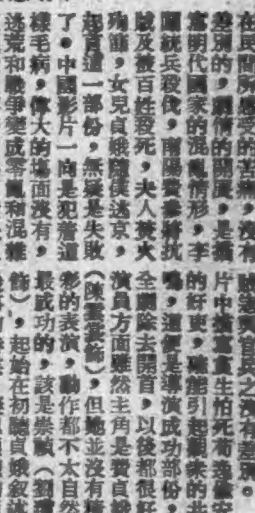 在民間所感受的苦痛，沒有
差別的，劇情的開展，是描
寫明代國家的混亂情形，李
統兵伐，南陽費參將抗
以及衆百姓殺死，夫人焚火
殉節，女兒貞娥隨僕逃京，
起首這一部份，無疑是失敗
了。中國影片一向是犯着這
樣毛病，偉大的場面沒有，
逃荒和戰爭變成零亂和混雜
與官兵之沒有差別。
片中描寫貪生怕死苟逸偷安
的奸吏，確能引起觀衆的共
鳴，這便是導演成功部份，
全劇除去開首，以後都很好
演員方面雖然主角是費貞娥
（陳雲裳飾），但她並沒有精
彩的表演，動作都不太自然
最成功的，該是崇禎（劉瓊
飾），起始在初聽貞娥敘述